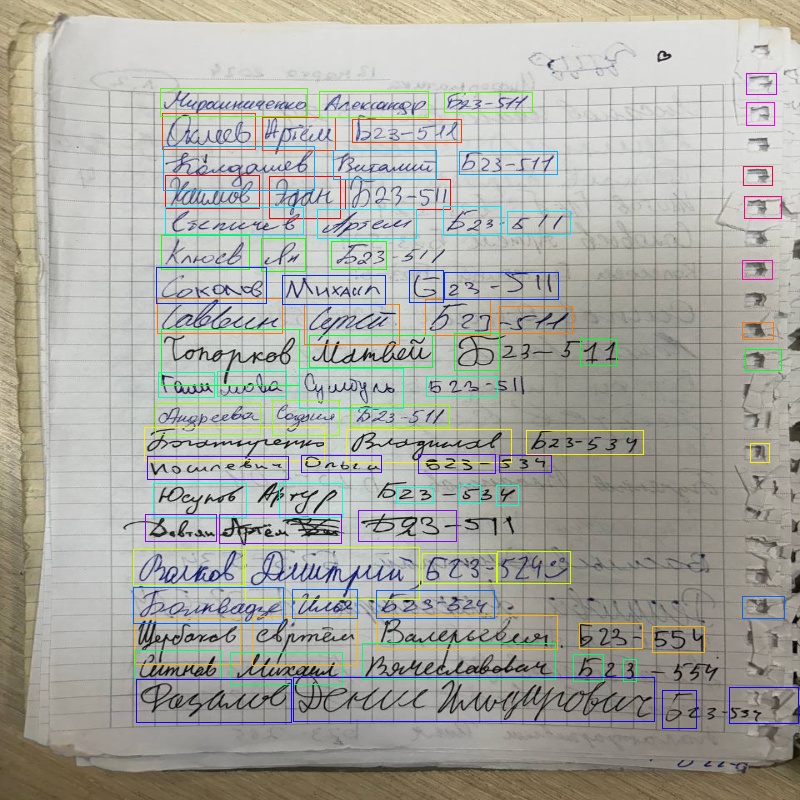 Мирошниченко Александр Б23-511
Оклеев Артём Б23-511
Колдашев Виталий Б23-511
Каимов Эдан Б23-511
Артем Б23-511
Клюев Ян Б23-511
Соколов Михаил Б23-511
Саввин Сергей Б23-511
Топорков Матвей Б23-511
Галимова Сумбуль Б23-511
Андреева Б23-511
Богатыренко Владислав Б23-534
Ольга Б23-534
Юсупов Артур Б23-534
Артём Б23-511
Волков Дмитрий Б23-524
Болквадзе Илья Б23-524
Щербаков Валерьевич Б23-554
Ситнев Михаил Вячеславович Б23-554
Фазалов Денис Ильдарович Б23-534